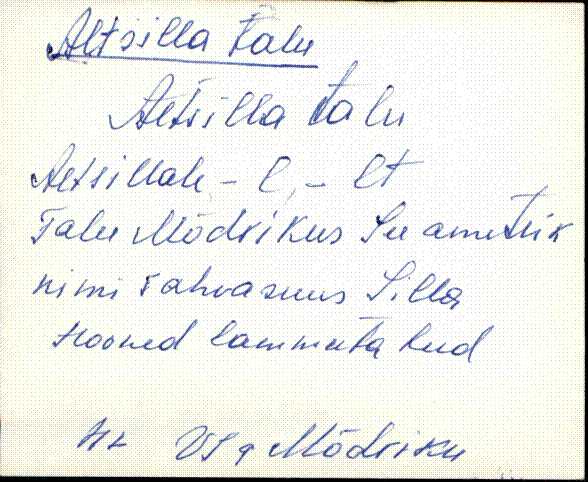 Altsilla talu
Altsilla talu
Altsillale, -l, -lt
Talu Mõdrikus See ametlik
nimi rahvasuus Silla
Hooned lammutatud
Mõdriku